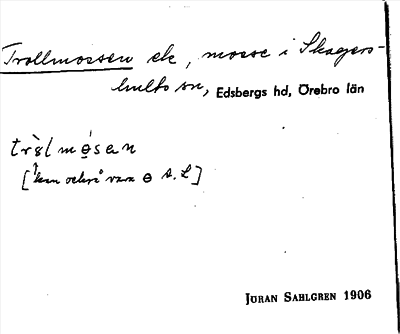 Trollmossen ek, mosse i Skagers-
hults sn, Edsbergs hd, Örebro län
tròlmósen
[kan också vara ɵ s. L]
JÖRAN SAHLGREN 1906